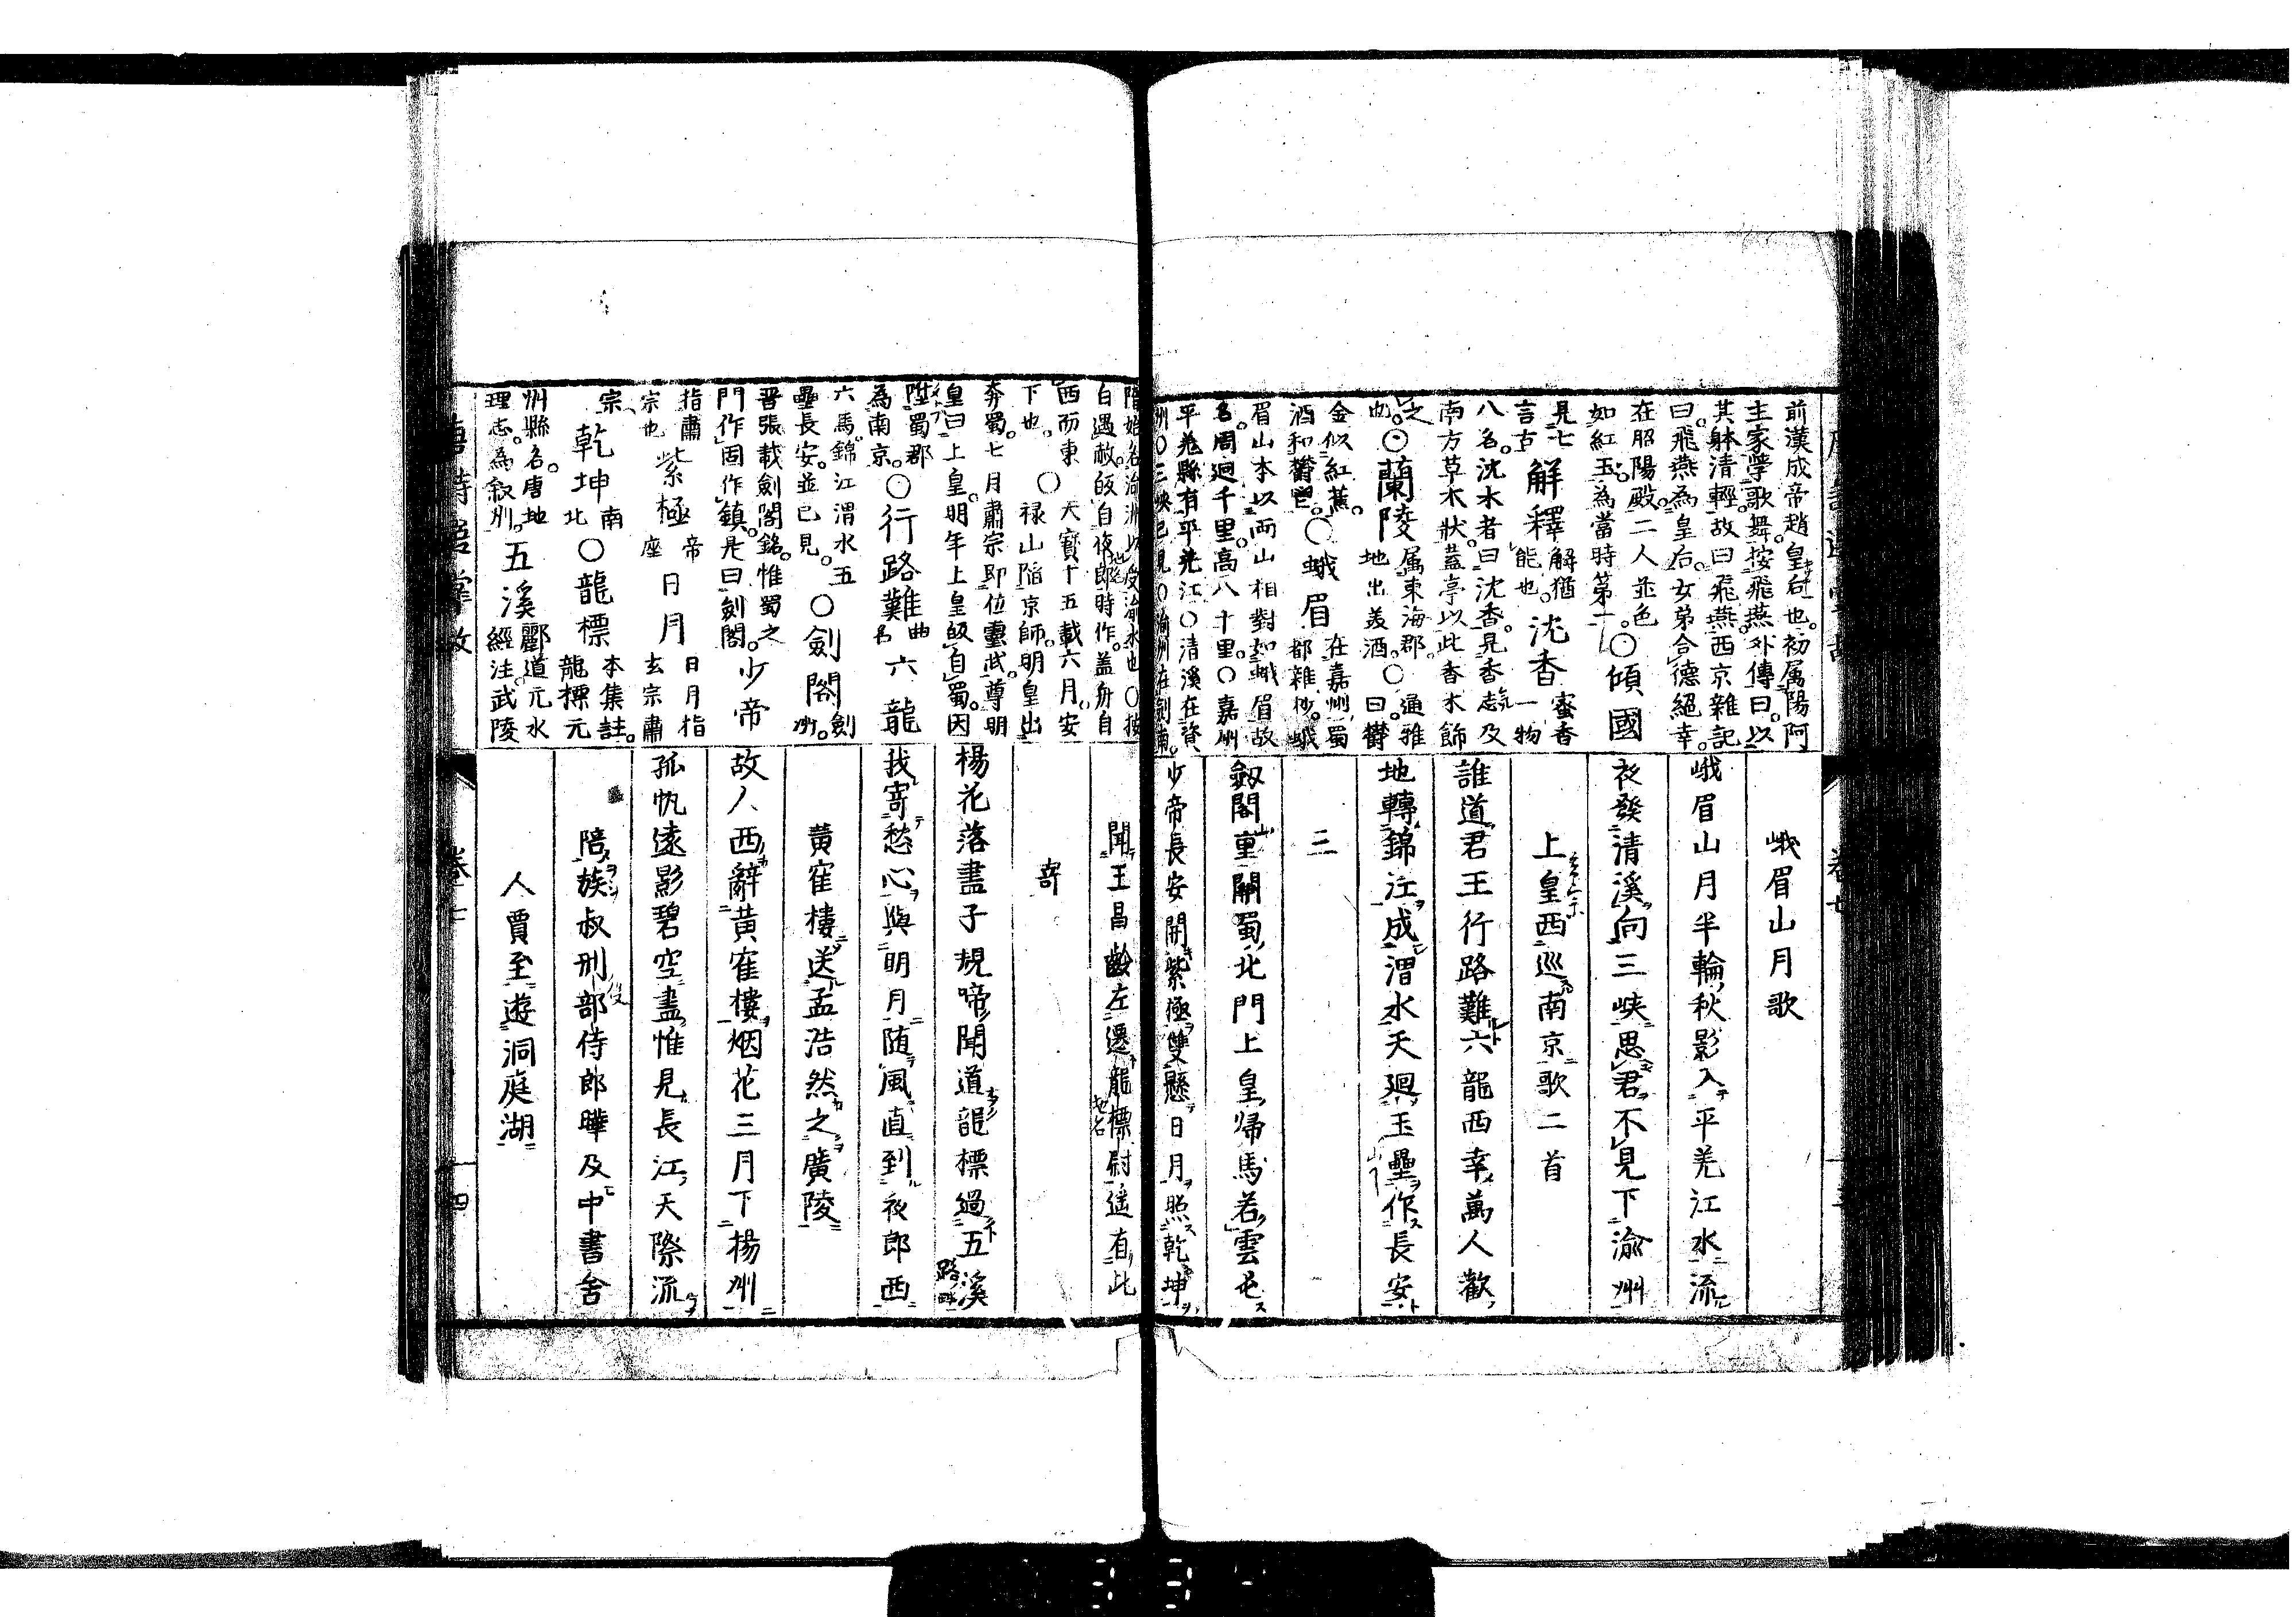 前漢成帝趙皇后也。初属陽阿
主家学歌舞。按飛燕外傳曰。以
其躰清輕。故曰飛燕。西京雜記
曰。飛燕為皇后。女弟合德絕幸。
在昭陽殿。二人並色
如紅玉。為當時第一。○傾國
見七
言古解釋解猶
能也。沈香蜜香
一物
八名。沈水者曰沈香。見香志及
南方草木狀。蓋亭以此香木飾
之
也。○蘭陵属東海郡。
地出美酒。○通雅
曰。欝
金似紅蕉。
酒和欝鬯。○峨眉在嘉州蜀
都雜抄。峨
眉山本以両山相對如峨眉故
名。周廻千里。高八十里。○嘉州
平羌縣有平羌江○清溪在資
州○三峽已見○渝州在劍南。
峨眉山月歌
峨眉山月半輪秋影入平羌江水流
夜發清溪向三峽思君不見下渝州
上皇西巡南京歌二首
誰道君王行路難六龍西幸萬人歡
地轉錦江成渭水天廻玉壘作長安
二
劔閣重關蜀北門上皇歸馬若雲屯
少帝長安開紫極雙懸日月照乾坤
隋始名渝洲以
白遇赦。皈自夜郎時作。蓋舟自
西而東
下也。○天寳十五載六月。安
禄山陷京師。明皇出
奔蜀。七月肅宗即位靈武。尊明
皇曰上皇。明年上皇皈自蜀。因
陞蜀郡
為南京。○行路難曲
名六龍
六馬。錦江渭水五
壘長安。並已見。○劍閣劍
州。
晋張載劍閣銘。惟蜀之
門作固作鎮。是曰劍閣。少帝
指肅
宗也紫極帝
座日月日月指
玄宗肅
宗乾坤南
北○龍標本集註。
龍標元
州縣名。唐地
理志。為叙州。五溪酈道元水
經注。武陵
聞王昌齡左遷龍標尉遥有此
寄
楊花落盡子規啼聞道龍標過五溪
我寄愁心與明月随風直到夜郎西
黄寉樓送孟浩然之廣陵
故人西辭黄寉樓烟花三月下揚州
孤帆遠影碧空盡惟見長江天際流
陪族叔刑部侍郎曄及中書舍
人賈至遊洞庭湖